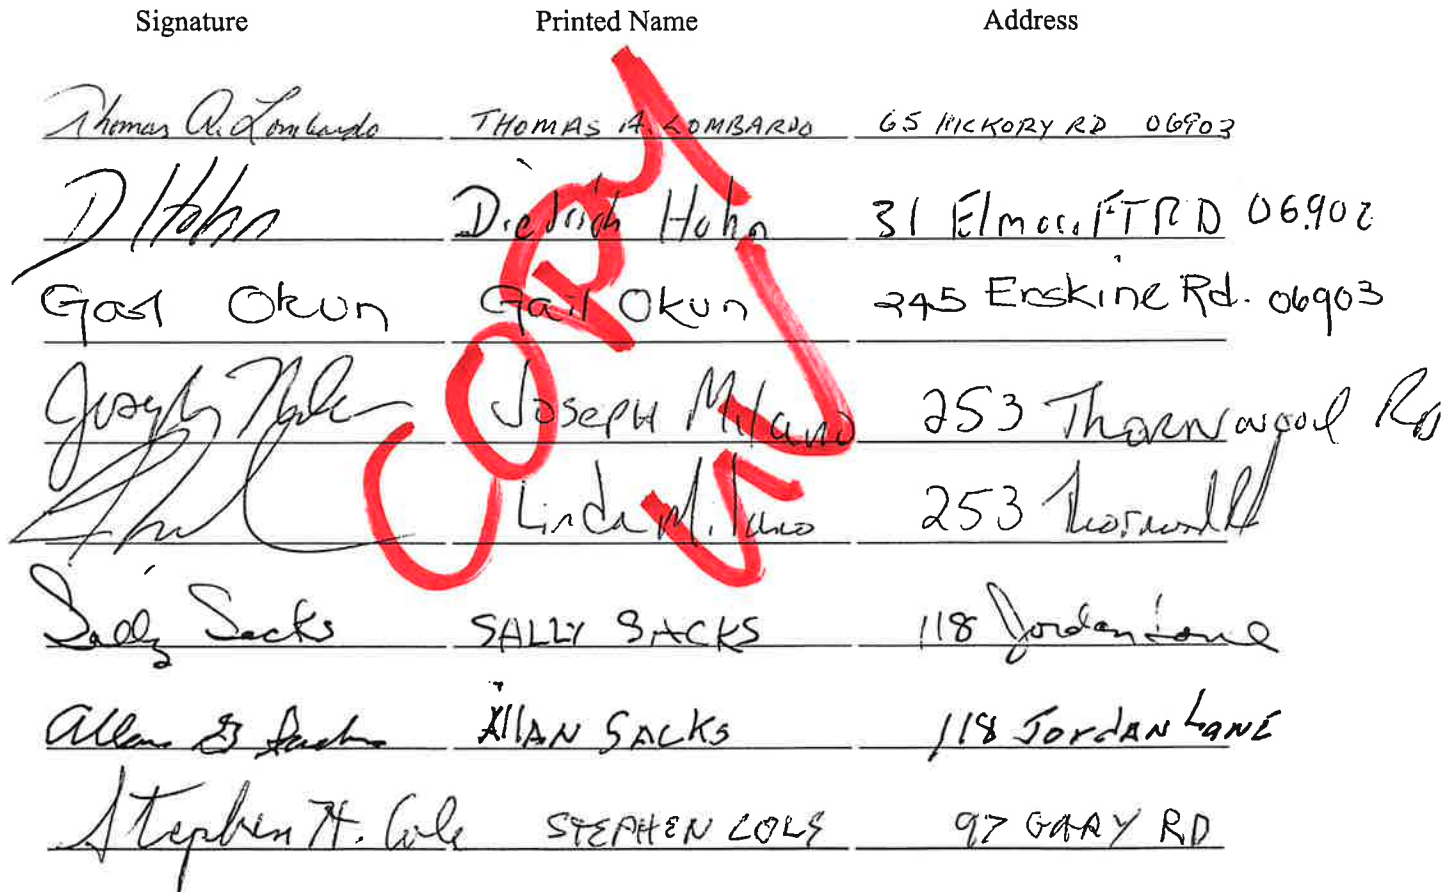 Signature Printed Name Address
Thomas A. Lombardo THOMAS A. LOMBARDO 65 HICKORY RD 06903
D Hohn Diedrich Hohn 31 06902
Gail Okun Gail Okun 245 Erskine Rd. 06903
Joseph JOSEPH Milano 253 Thornwood Rd
Linda Milano 253
Sally Sacks SALLY SACKS 118 Jordan Lane
Allan ALLAN SACKS 118 JORDAN LANE
Stephen H. Cole STEPHEN COLE 97 GARY RD
COPY